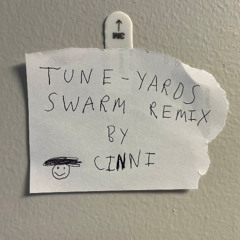 TUNE-YARDS
SWARM REMIX
BY
CINNI